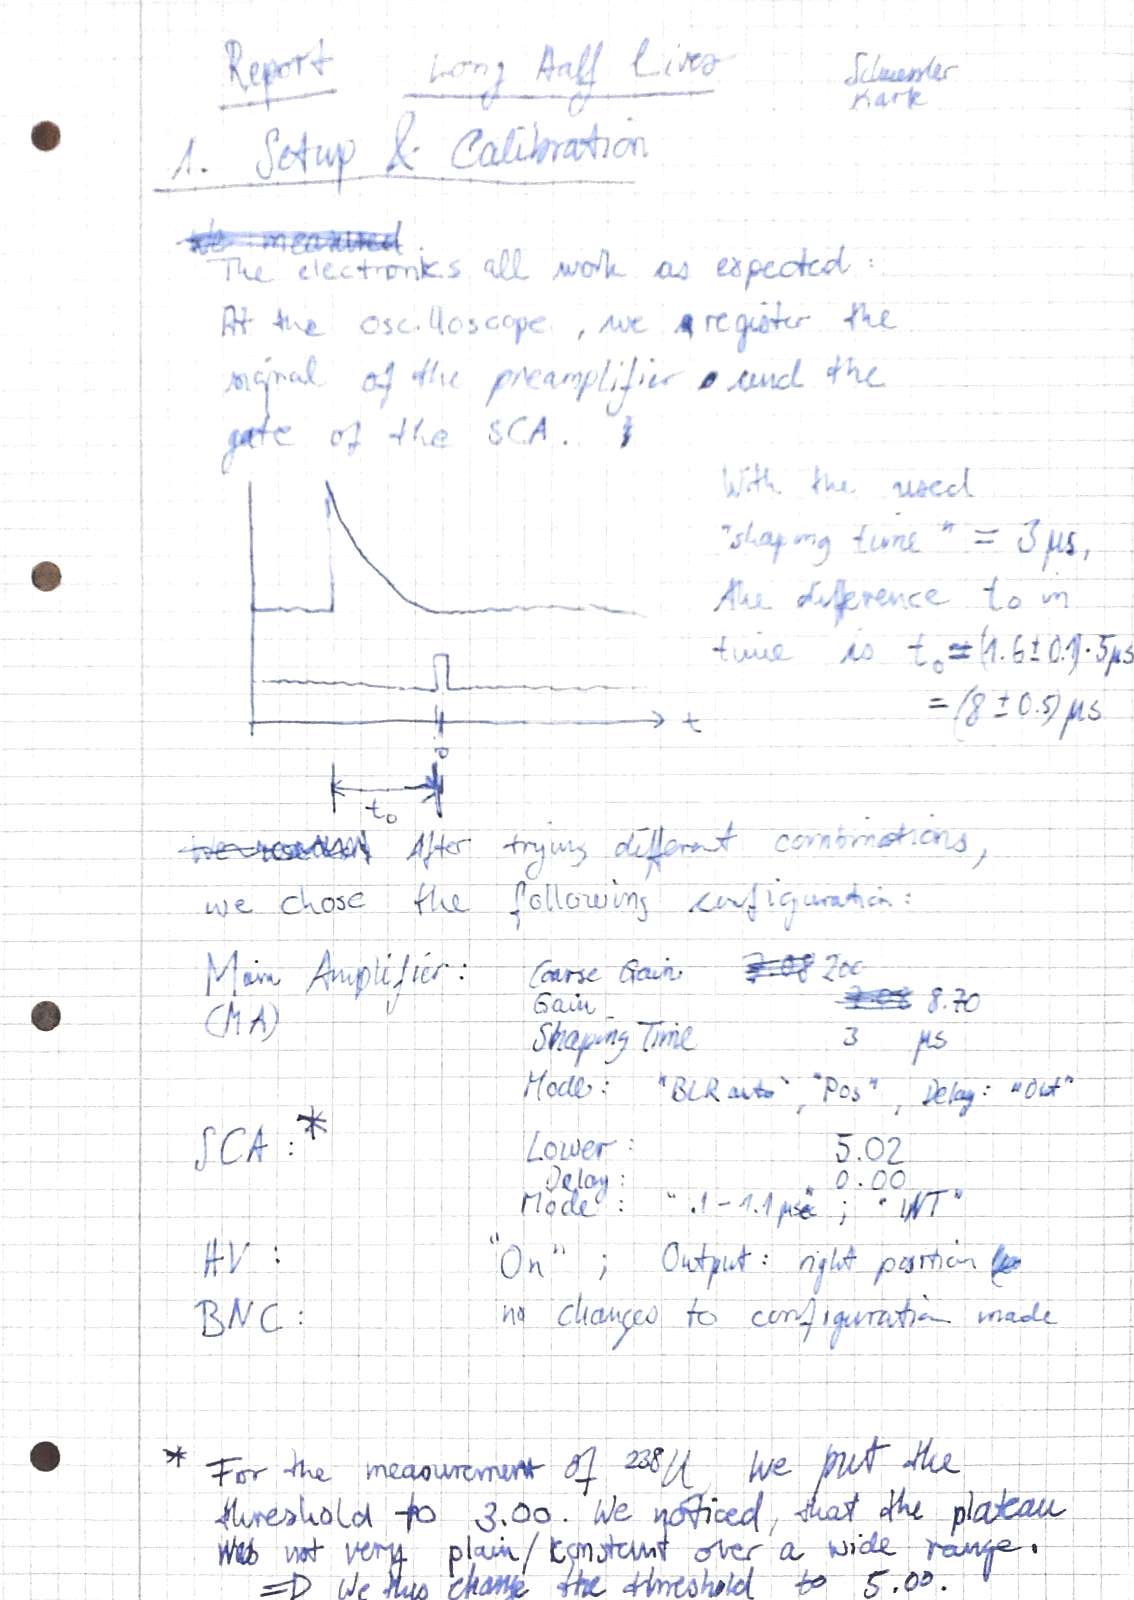 Report Long Half Lives
Kark
1. Setup & Calibration
We measured
The electronics all work as expected:
At the oscilloscope, we register the
signal of the preamplifier and the
gate of the SCA.
With the used
"shaping time" = 3 μs,
the difference t₀ in
time is t₀ = (1.6 ± 0.1) · 5 μs
= (8 ± 0.5) μs
t
t₀
After trying different combinations,
we chose the following configuration:
Main Amplifier: Coarse Gain 7.08 200
(MA) Gain 7.08 8.70
Shaping Time 3 μs
Mode: "BLR auto", "Pos", Delay: "Out"
SCA:* Lower: 5.02
Delay: 0.00
Mode: ".1-1.1 μs"; "INT"
HV: "On"; Output: right position
BNC: no changes to configuration made
* For the measurement of ²³⁸U we put the
threshold to 3.00. We noticed, that the plateau
was not very plain/constant over a wide range.
=D We thus change the threshold to 5.00.